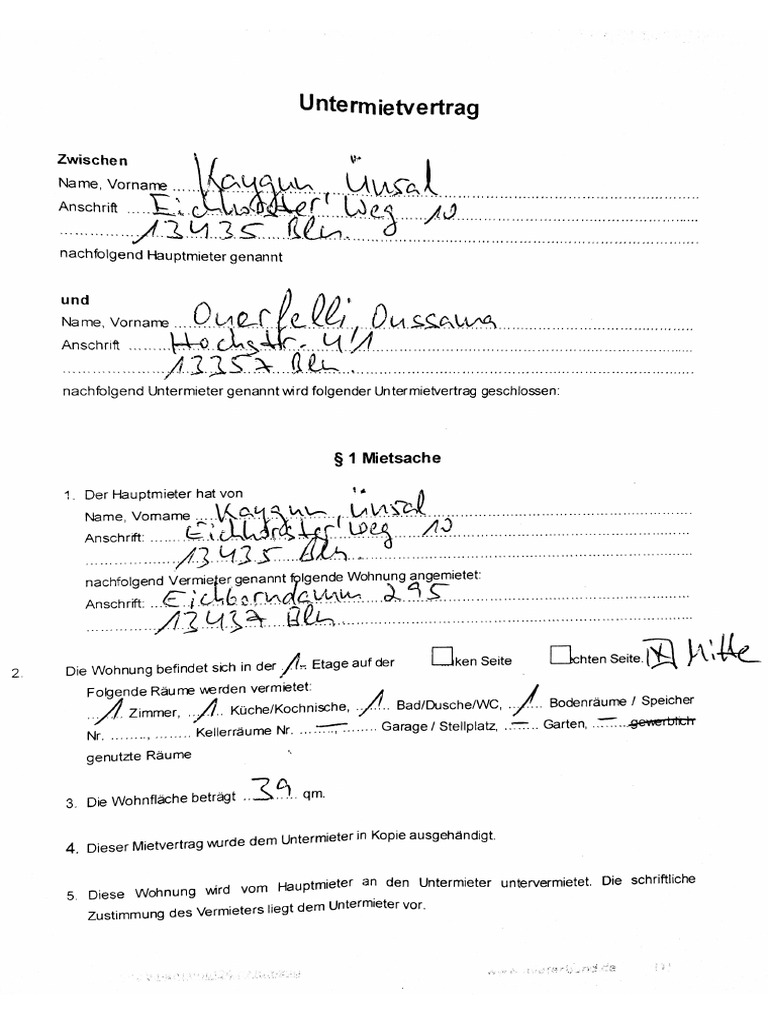 Untermietvertrag
Zwischen
Name, Vorname ... Kaygun, Ünsal
Anschrift ... Eichhorster Weg 10
13435 Bln.
nachfolgend Hauptmieter genannt
und
Name, Vorname ... Ouerfelli, Oussama
Anschrift ... Hochstr. 41
13357 Bln.
nachfolgend Untermieter genannt wird folgender Untermietvertrag geschlossen:
§ 1 Mietsache
1. Der Hauptmieter hat von
Name, Vorname ... Kaygun, Ünsal
Anschrift: ... Eichhorster Weg 10
13435 Bln.
nachfolgend Vermieter genannt folgende Wohnung angemietet:
Anschrift: ... Eichborndamm 295
13437 Bln
2. Die Wohnung befindet sich in der 1. Etage auf der ☐ken Seite ☐chten Seite. ☒ Mitte
Folgende Räume werden vermietet:
1. Zimmer, 1. Küche/Kochnische, 1. Bad/Dusche/WC, 1 Bodenräume / Speicher
Nr. ........, ........ Kellerräume Nr. ........, ........ Garage / Stellplatz, ........ Garten, ........ gewerblich
genutzte Räume
3. Die Wohnfläche beträgt 39 qm.
4. Dieser Mietvertrag wurde dem Untermieter in Kopie ausgehändigt.
5. Diese Wohnung wird vom Hauptmieter an den Untermieter untervermietet. Die schriftliche
Zustimmung des Vermieters liegt dem Untermieter vor.